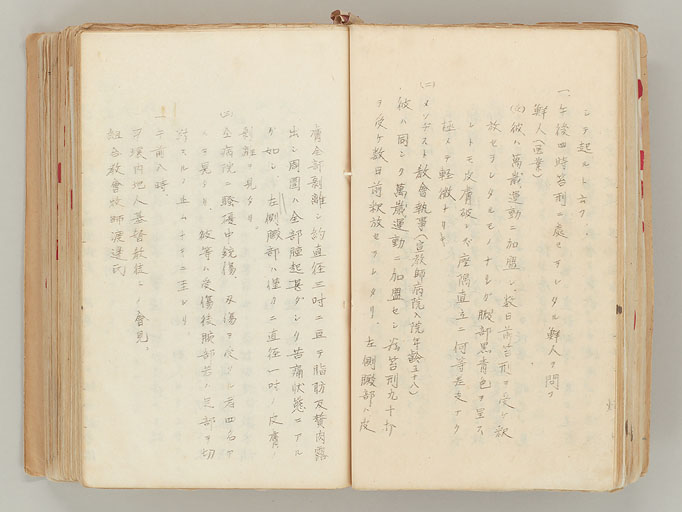 シテ起ルト云フ、
一、午後四時笞刑ニ處セラレタル鮮人ヲ問フ
鮮人(医業)
(イ)彼ハ萬歳運動ニ加盟シ、数日前笞刑ヲ受ケ釈
放セラレタルモノナルガ臀部黒青色ヲ呈ス
レトモ皮膚破レズ座隅直立ニ何等差支ナク
極メテ軽微ナリキ
(二)メソヂスト教會執事(宣教師病院入院年齢五十八)
彼ハ同ジク萬歳運動ニ加盟セシ為笞刑九十打
ヲ受ケ数日前釈放セラレタリ、左側臀部ハ皮
膚全部剥離シ約直径三吋ニ亘テ脂肪及贅肉露
出シ周囲ハ全部腫起甚ダシク苦痛状態ニアル
ガ如シ、左側臀部ハ僅カニ直径一吋ノ皮膚
剥離ヲ見タリ。
仝病院ニ騒擾中銃傷、及傷ヲ受ケタル者四名ヲ
見タリ 彼等ハ受傷後腕部若ハ足部ヲ切
スルノ止ムナキニ至レリ、
一、午前八時
環内地人基督教徒ト 會見、
組合教會牧師渡邊氏